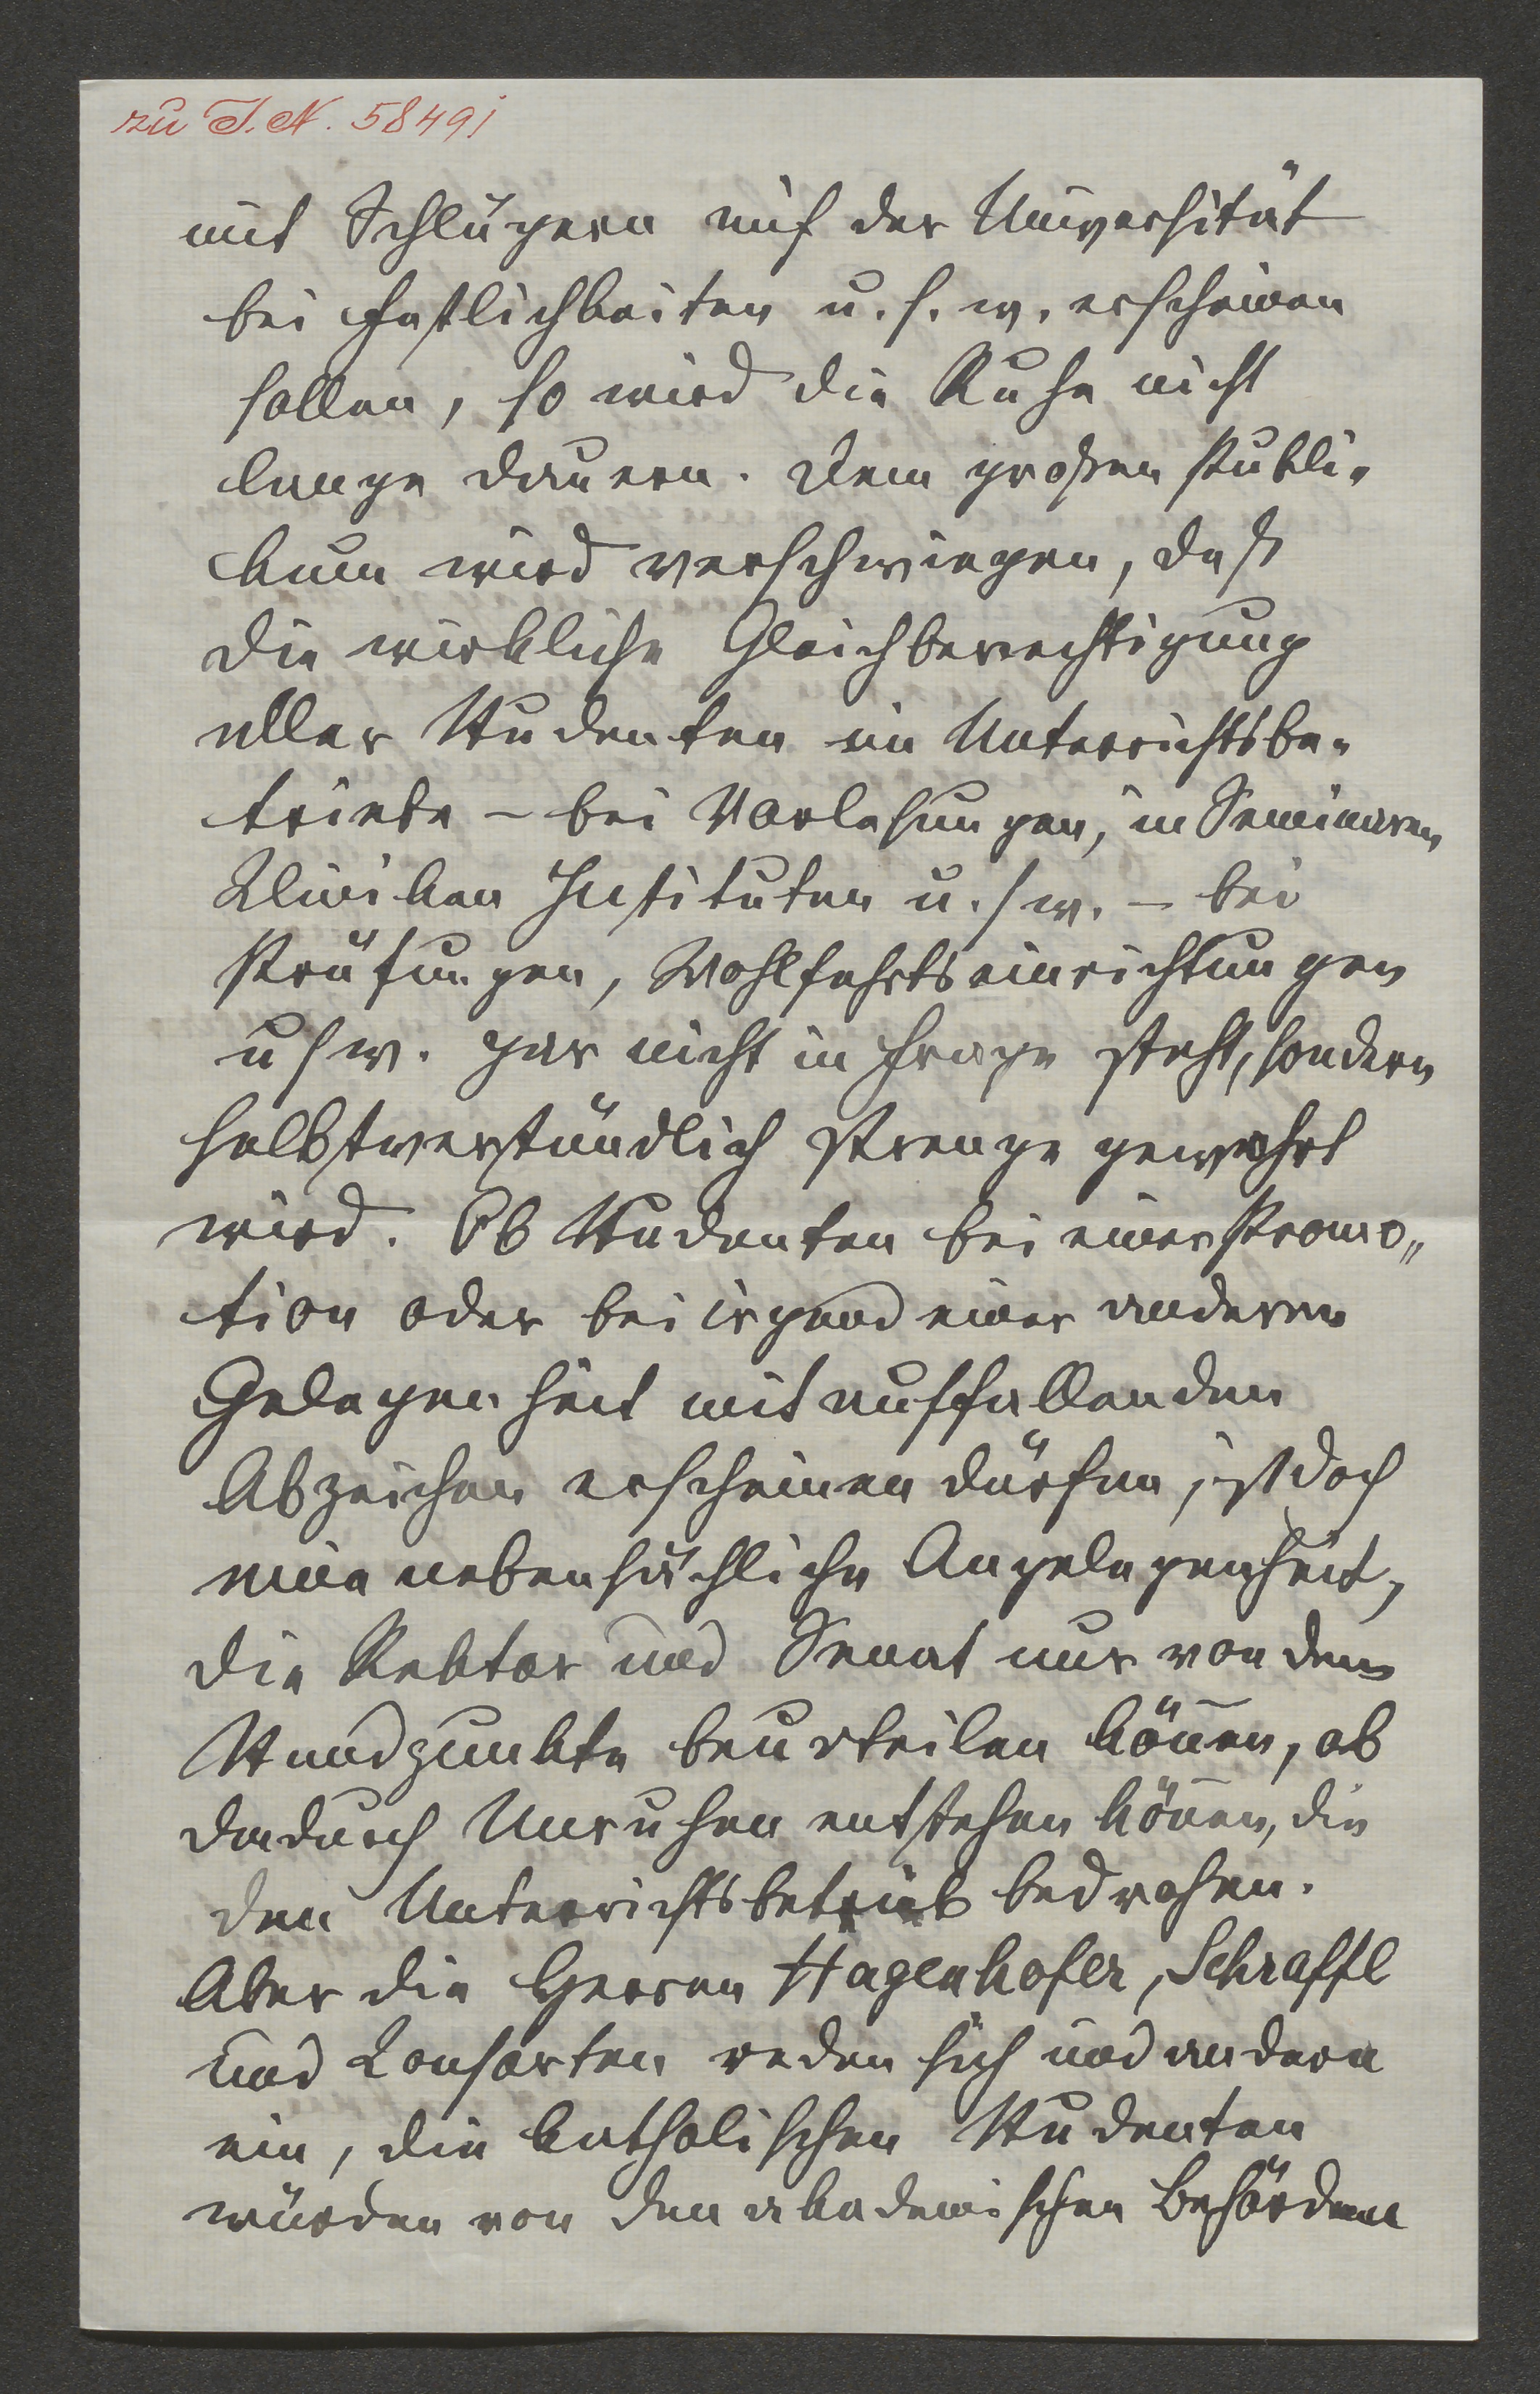 zu I.N. 58491
mit Schlägern auf der Universität
bei Festlichkeiten u. s. w. erscheinen
sollen, so wird die Ruhe nicht
lange dauern. Dem großen Publi-
kum wird verschwiegen, daß
die wirkliche Gleichberechtigung
aller Studenten im Unterrichtsbe-
triebe – bei Vorlesungen, in Seminaren
Kliniken Instituten u. s w. – bei
Prüfungen, Wohlfahrtseinrichtungen
u s w. gar nicht in Frage steht, sondern
selbstverständlich strenge gewahrt
wird. Ob Studenten bei einer Promo„
tion oder bei irgend einer anderen
Gelegenheit mit auffallenden
Abzeichen erscheinen dürfen, ist doch
eine nebensächliche Angelegenheit,
die Rektor und Senat nur von dem
Standpunkte beurteilen kön̅en, ob
dadurch Unruhen entstehen kön̅en, die
den Unterrichtsbetrieb bedrohen.
Aber die Herren Hagenhofer, Schraffl
und Konsorten reden sich und andern
ein, die katholischen Studenten
würden von den akademischen Behörden